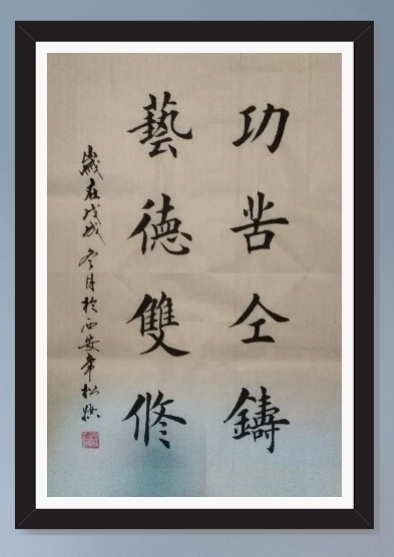 功苦仝鑄
藝德雙修
歲在戊戌冬月於西安韋松